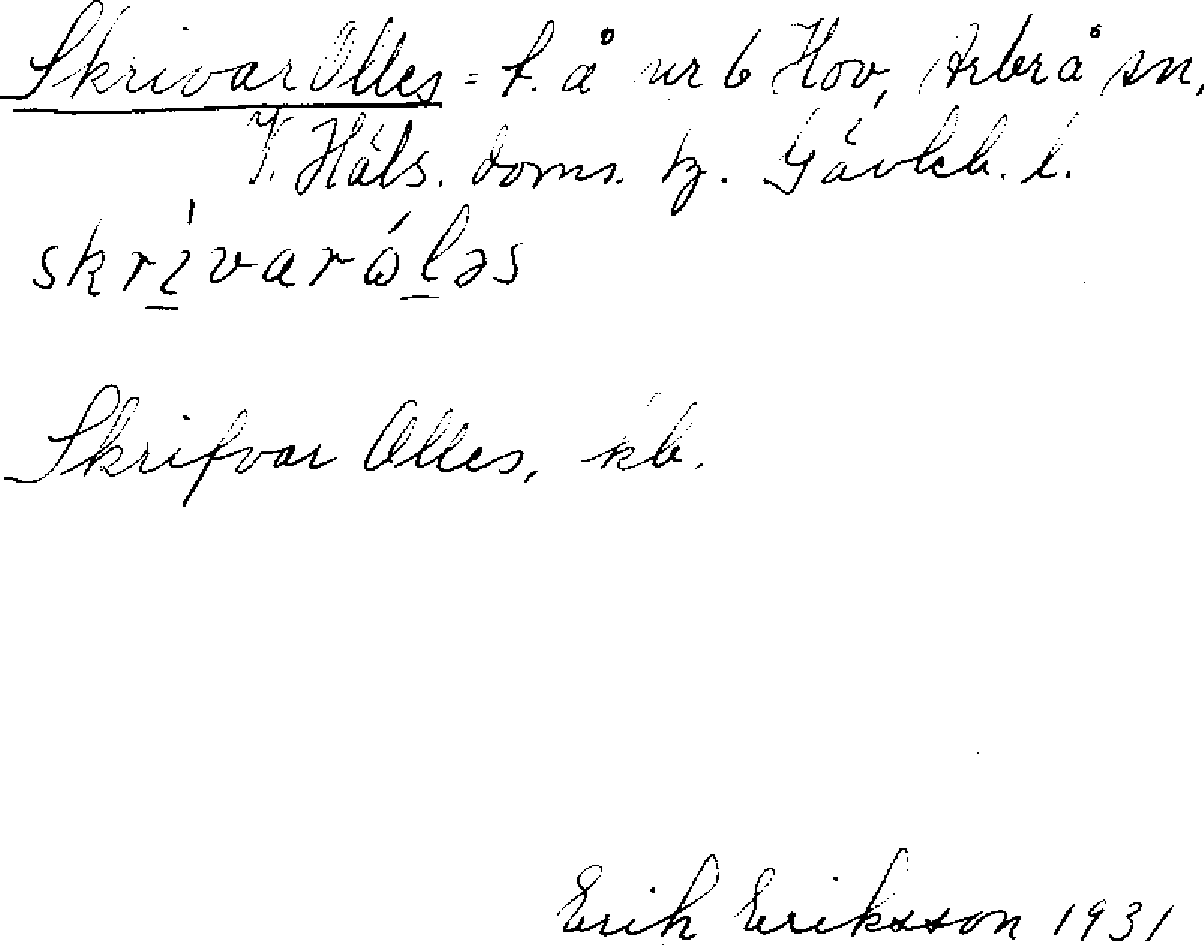 Skrivar Olles = f. å nr 6 Hov, Arbrå sn,
V. Häls. doms. tg. Gävleb. l.
skrìvaróləs
Skrifvar Olles, kb.
Erik Eriksson 1931